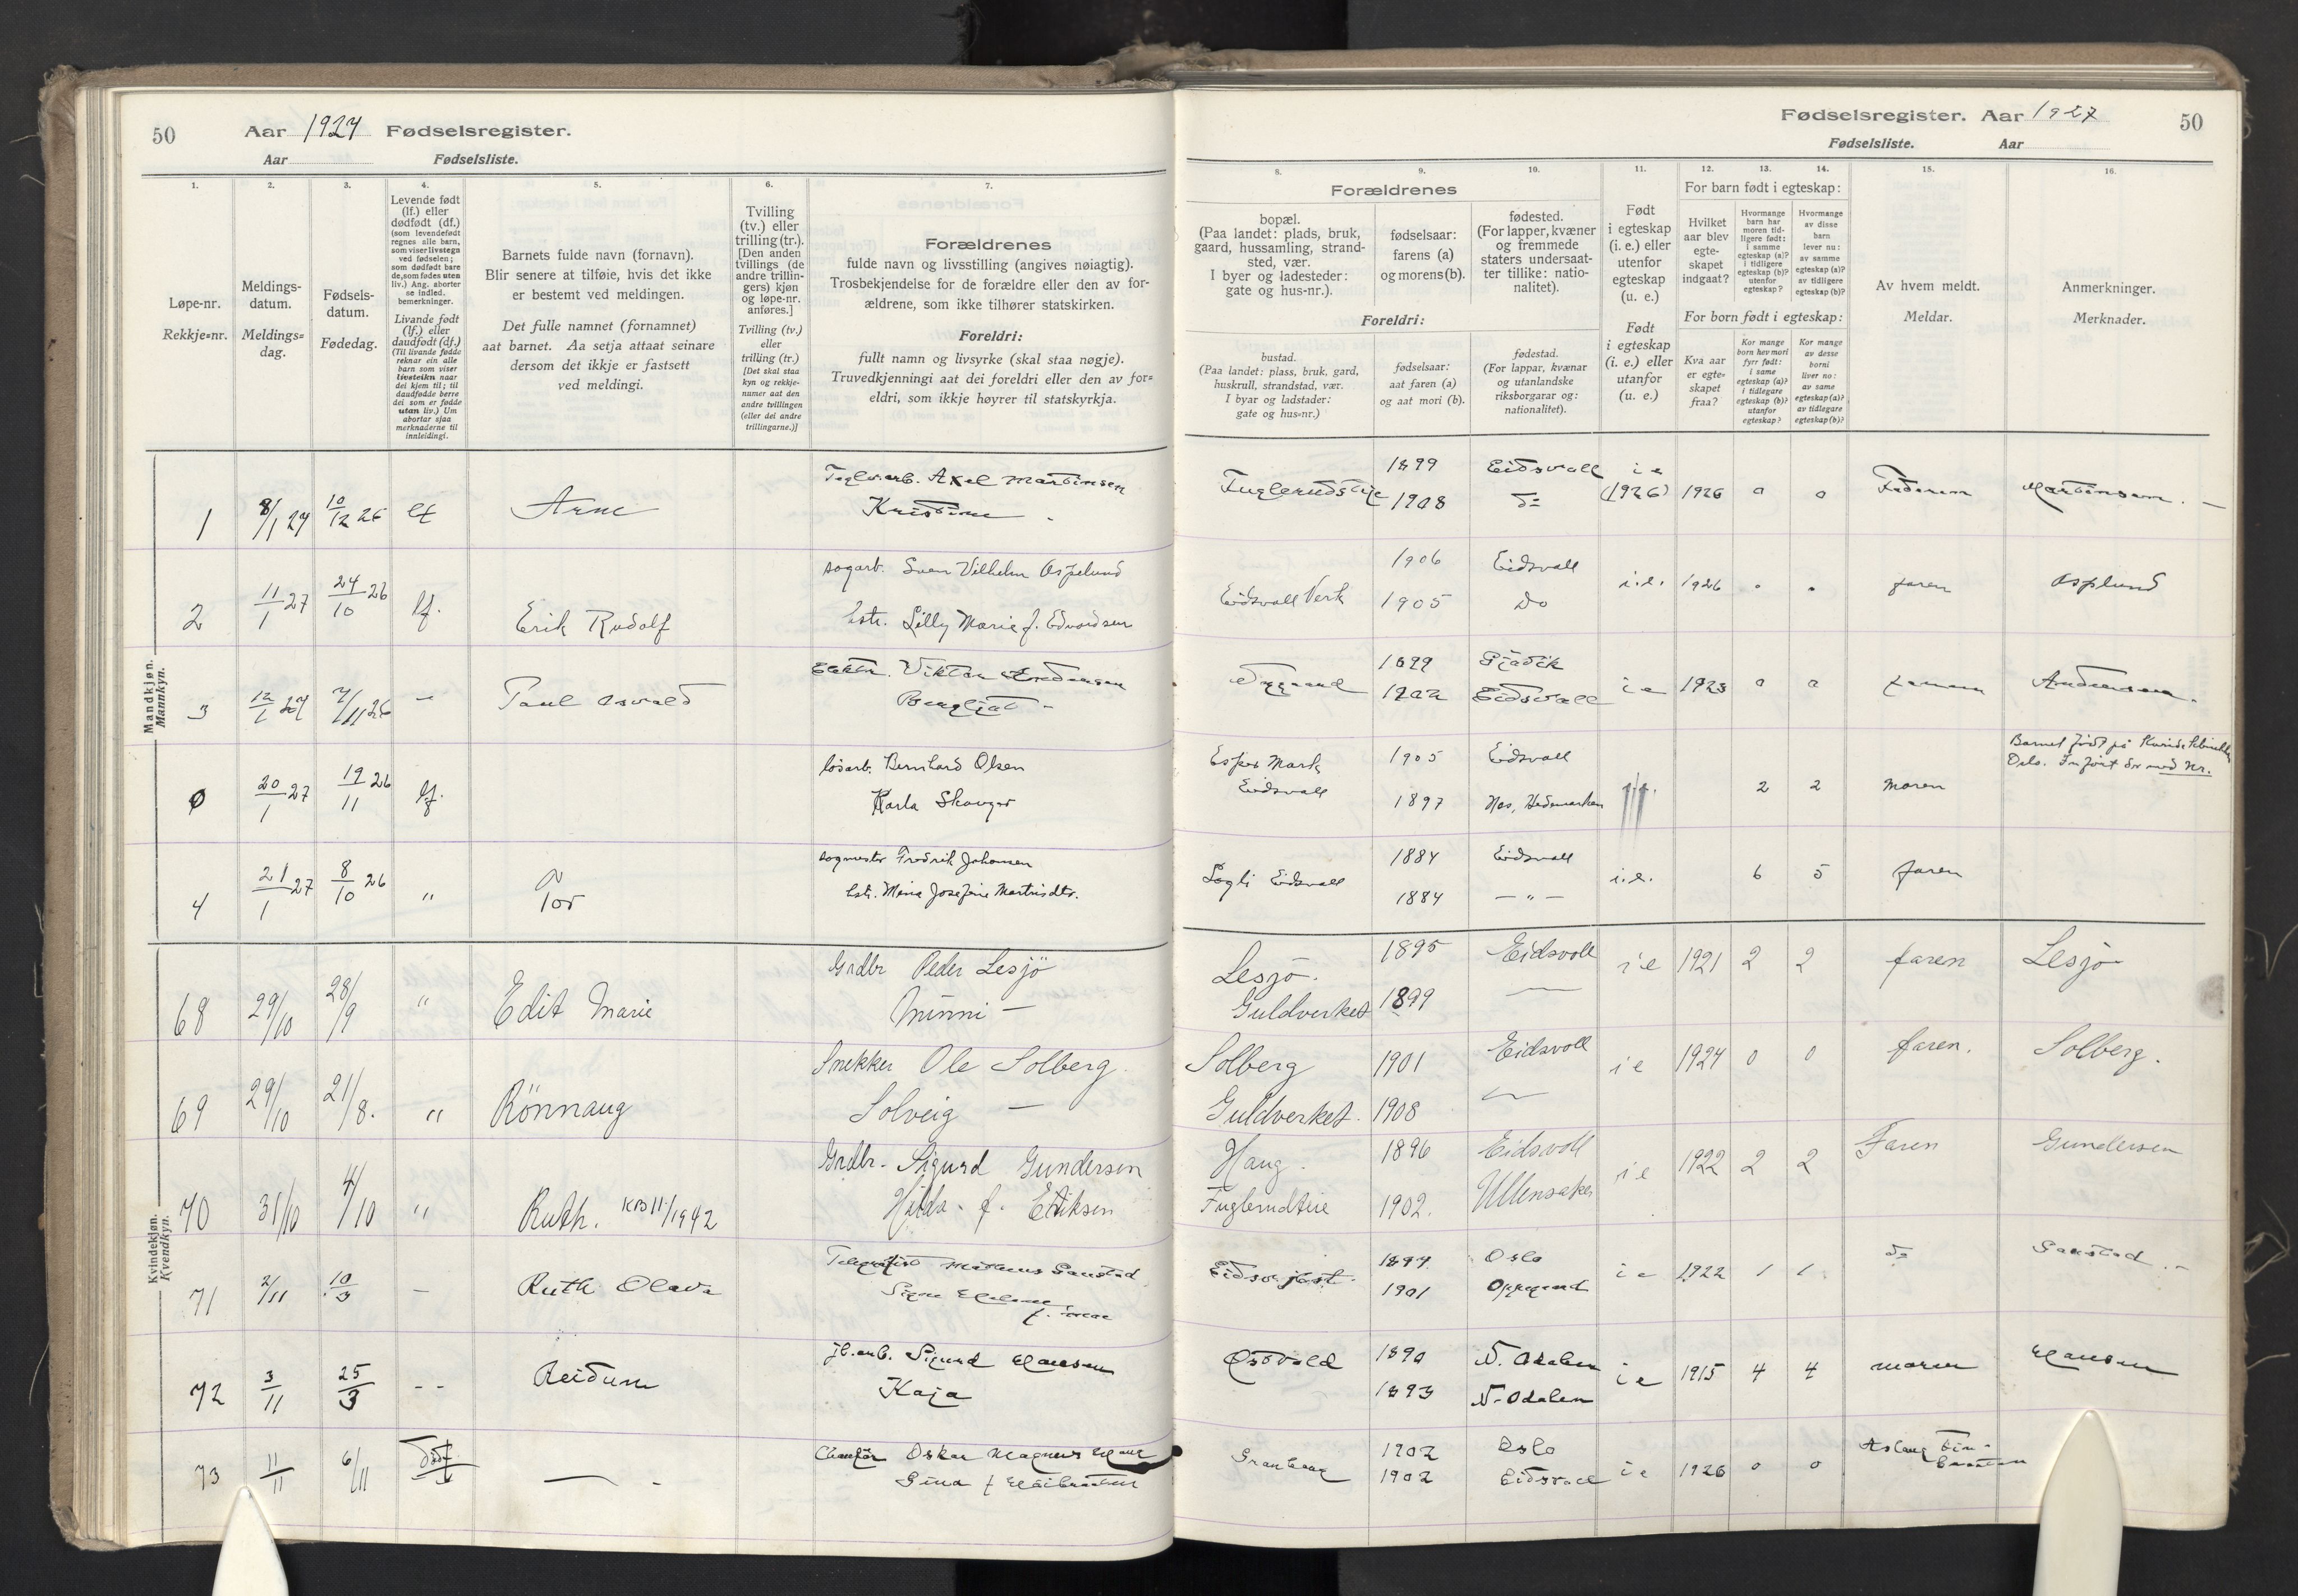 50
Aar 1927 Fødselsregister.
Aar Fødselsliste.
Fødselsregister. Aar 1927
50
Fødselsliste. Aar
1.
Løpe-nr.
Rekkje=nr.
2.
Meldings-
datum.
Meldings=
dag.
3.
Fødsels-
datum.
Fødedag.
4.
Levende født
(lf.) eller
dødfødt (df.)
(som levendefødt
regnes alle barn,
som viser livstegn
ved fødselen;
som dødfødt bare
de, som fødes uten
liv.) Ang. aborter
se indled.
bemerkninger.
Livande født
(lf.) eller
daudfødt (df.)
(Til livande fødde
reknar ein alle
barn som viser
livsteikn naar
dei kjem til; til
daudfødde berre
dei som er fødde
utan liv.) Um
abortar sjaa
merknaderne til
innleidingi.
5.
Barnets fulde navn (fornavn).
Blir senere at tilføie, hvis det ikke
er bestemt ved meldingen.
Det fulle namnet (fornamnet)
aat barnet. Aa setja attaat seinare
dersom det ikkje er fastsett
ved meldingi.
6.
Tvilling
(tv.) eller
trilling (tr.).
[Den anden
tvillings (de
andre trillin-
gers) kjøn
og løpe-nr.
anføres.]
Tvilling (tv.)
eller
trilling (tr.)
[Det skal staa
kyn og rekkje-
numer aat den
andre tvillingen
(eller dei andre
trillingarne.)]
7.
Forældrenes
fulde navn og livsstilling (angives nøiagtig).
Trosbekjendelse for de forældre eller den av for-
ældrene, som ikke tilhører statskirken.
Foreldri:
fullt namn og livsyrke (skal staa nøgje).
Truvedkjenningi aat dei foreldri eller den av for=
eldri, som ikkje høyrer til statskyrkja.
Forældrenes
8.
bopæl.
(Paa landet: plads, bruk,
gaard, hussamling, strand-
sted, vær.
I byer og ladesteder:
gate og hus-nr.).
9.
fødselsaar:
farens (a)
og morens (b).
10.
fødested.
(For lapper, kvæner
og fremmede
staters undersaat-
ter tillike: natio-
nalitet).
Foreldri:
bustad.
(Paa landet: plass, bruk, gard,
huskrull, strandstad, vær.
I byar og ladstader:
gate og hus=nr.)
fødselsaar:
aat faren (a)
og aat mori (b).
fødestad.
(For lappar, kvænar
og utanlandske
riksborgarar og:
nationalitet).
11.
Født
i egteskap
(i. e.) eller
utenfor
egteskap
(u. e.)
Født
i egteskap
(i. e.) eller
utanfor
(u. e.)
For barn født i egteskap:
12.
Hvilket
aar blev
egte-
skapet
indgaat?
13.
Hvormange
barn har
moren tid-
ligere født:
i samme
egteskap (a)?
i tidligere
egteskap (b)?
utenfor
egteskap?
14.
Hvormange
av disse
barn
lever nu:
av samme
egteskap (a)?
av tidligere
egteskap (b)?
For born født i egteskap:
Kva aar
er egte-
skapet
fraa?
Kor mange
born hev mori
fyrr født:
i same
egteskap (a)?
i tidlegare
egteskap (b)?
utanfor
egteskap?
Kor mange
av desse
borni
liver no:
av same
egteskap (a)?
av tidlegare
egteskap (b)?
15.
Av hvem meldt.
Meldar.
16.
Anmerkninger.
Merknader.
Mandkjøn.
Mannkyn.
1 8/1 27 10/12 26 lf Arne Teglv.arb. Axel Martinsen 1899 Eidsvoll i e 1926 0 0 Faderen Martinsen. –
Kristine – Fuglerudstye 1908 do (1926)
2 11/1 27 24/10 26 lf. Erik Rudolf sagarb. Sven Vilhelm Asplund 1906 Eidsvoll i.e. 1926 faren Asplund
hstr. Lilly Marie f. Edvardsen Eidsvoll Verk 1905 Do
3 12/1 27 7/11 26 – Paul Osvald Viktor Andersen 1899 Gjøvik i e 1923 0 0 Andersen.
Bergljot – 1902 Eidsvoll
0 20/1 27 19/11 26 lf. løsarb. Bernhard Olsen 1905 Eidsvoll 2 2 moren Barnet født på Kvinneklinikken
Karla Skauger Eidsvoll 1897 Nes, Hedemarken Oslo. Innført der med Nr.
4 21/1 27 8/10 26 " Tor sagmester Fredrik Johansen 1884 Eidsvoll i.e. 6 5 faren
hstr. Marie Josefine Martinsdtr. Løgli Eidsvoll 1884 – " –
Kvindekjøn.
Kvendkyn.
68 29/10 28/9 " Edit Marie Grdbr Peder Lesjö Lesjö. 1895 Eidsvoll i e 1921 2 2 faren Lesjö
Minni – Guldverket 1899 –
69 29/10 21/8. " Rönnaug Snekker Ole Solberg. Solberg 1901 Eidsvoll i e 1924 0 0 faren. Solberg.
Solveig – Guldverket. 1908
70 31/10 4/10 " Ruth. KB 11/1942 Grdbr. Sigurd Gundersen Haug. 1896 Eidsvoll i e 1922 2 2 Faren Gundersen
Hilda. f. Eriksen 1902. Ullensaker
71 2/11 10/3 – Ruth Olava Telegrafist Matheus Sanstad Eidsv. jbst. 1897 Oslo i e 1922 1 1 do Sanstad. –
Signe 1901 Oppegaard
72 3/11 25/3 – – Reidun jb.arb. Sigurd Hansen Østvold 1890 N. Odalen i e 1915 4 4 moren Hansen
Kaja 1893 N. Odalen
73 11/11 6/11 dødf – Chaufför Oskar Magnus 1902 Oslo i e 1926 0 0 Aslaug
Gina f 1902 Eidsvoll